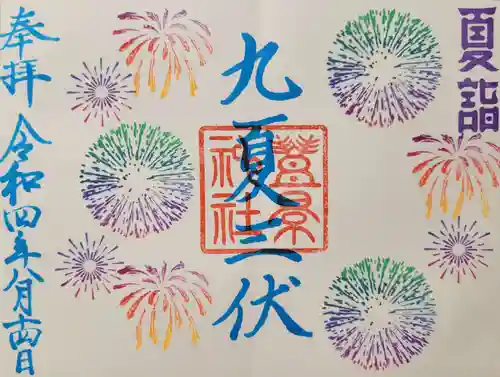 夏詣
九夏三伏
蠶影
神社
奉拝
令和四年八月十四日